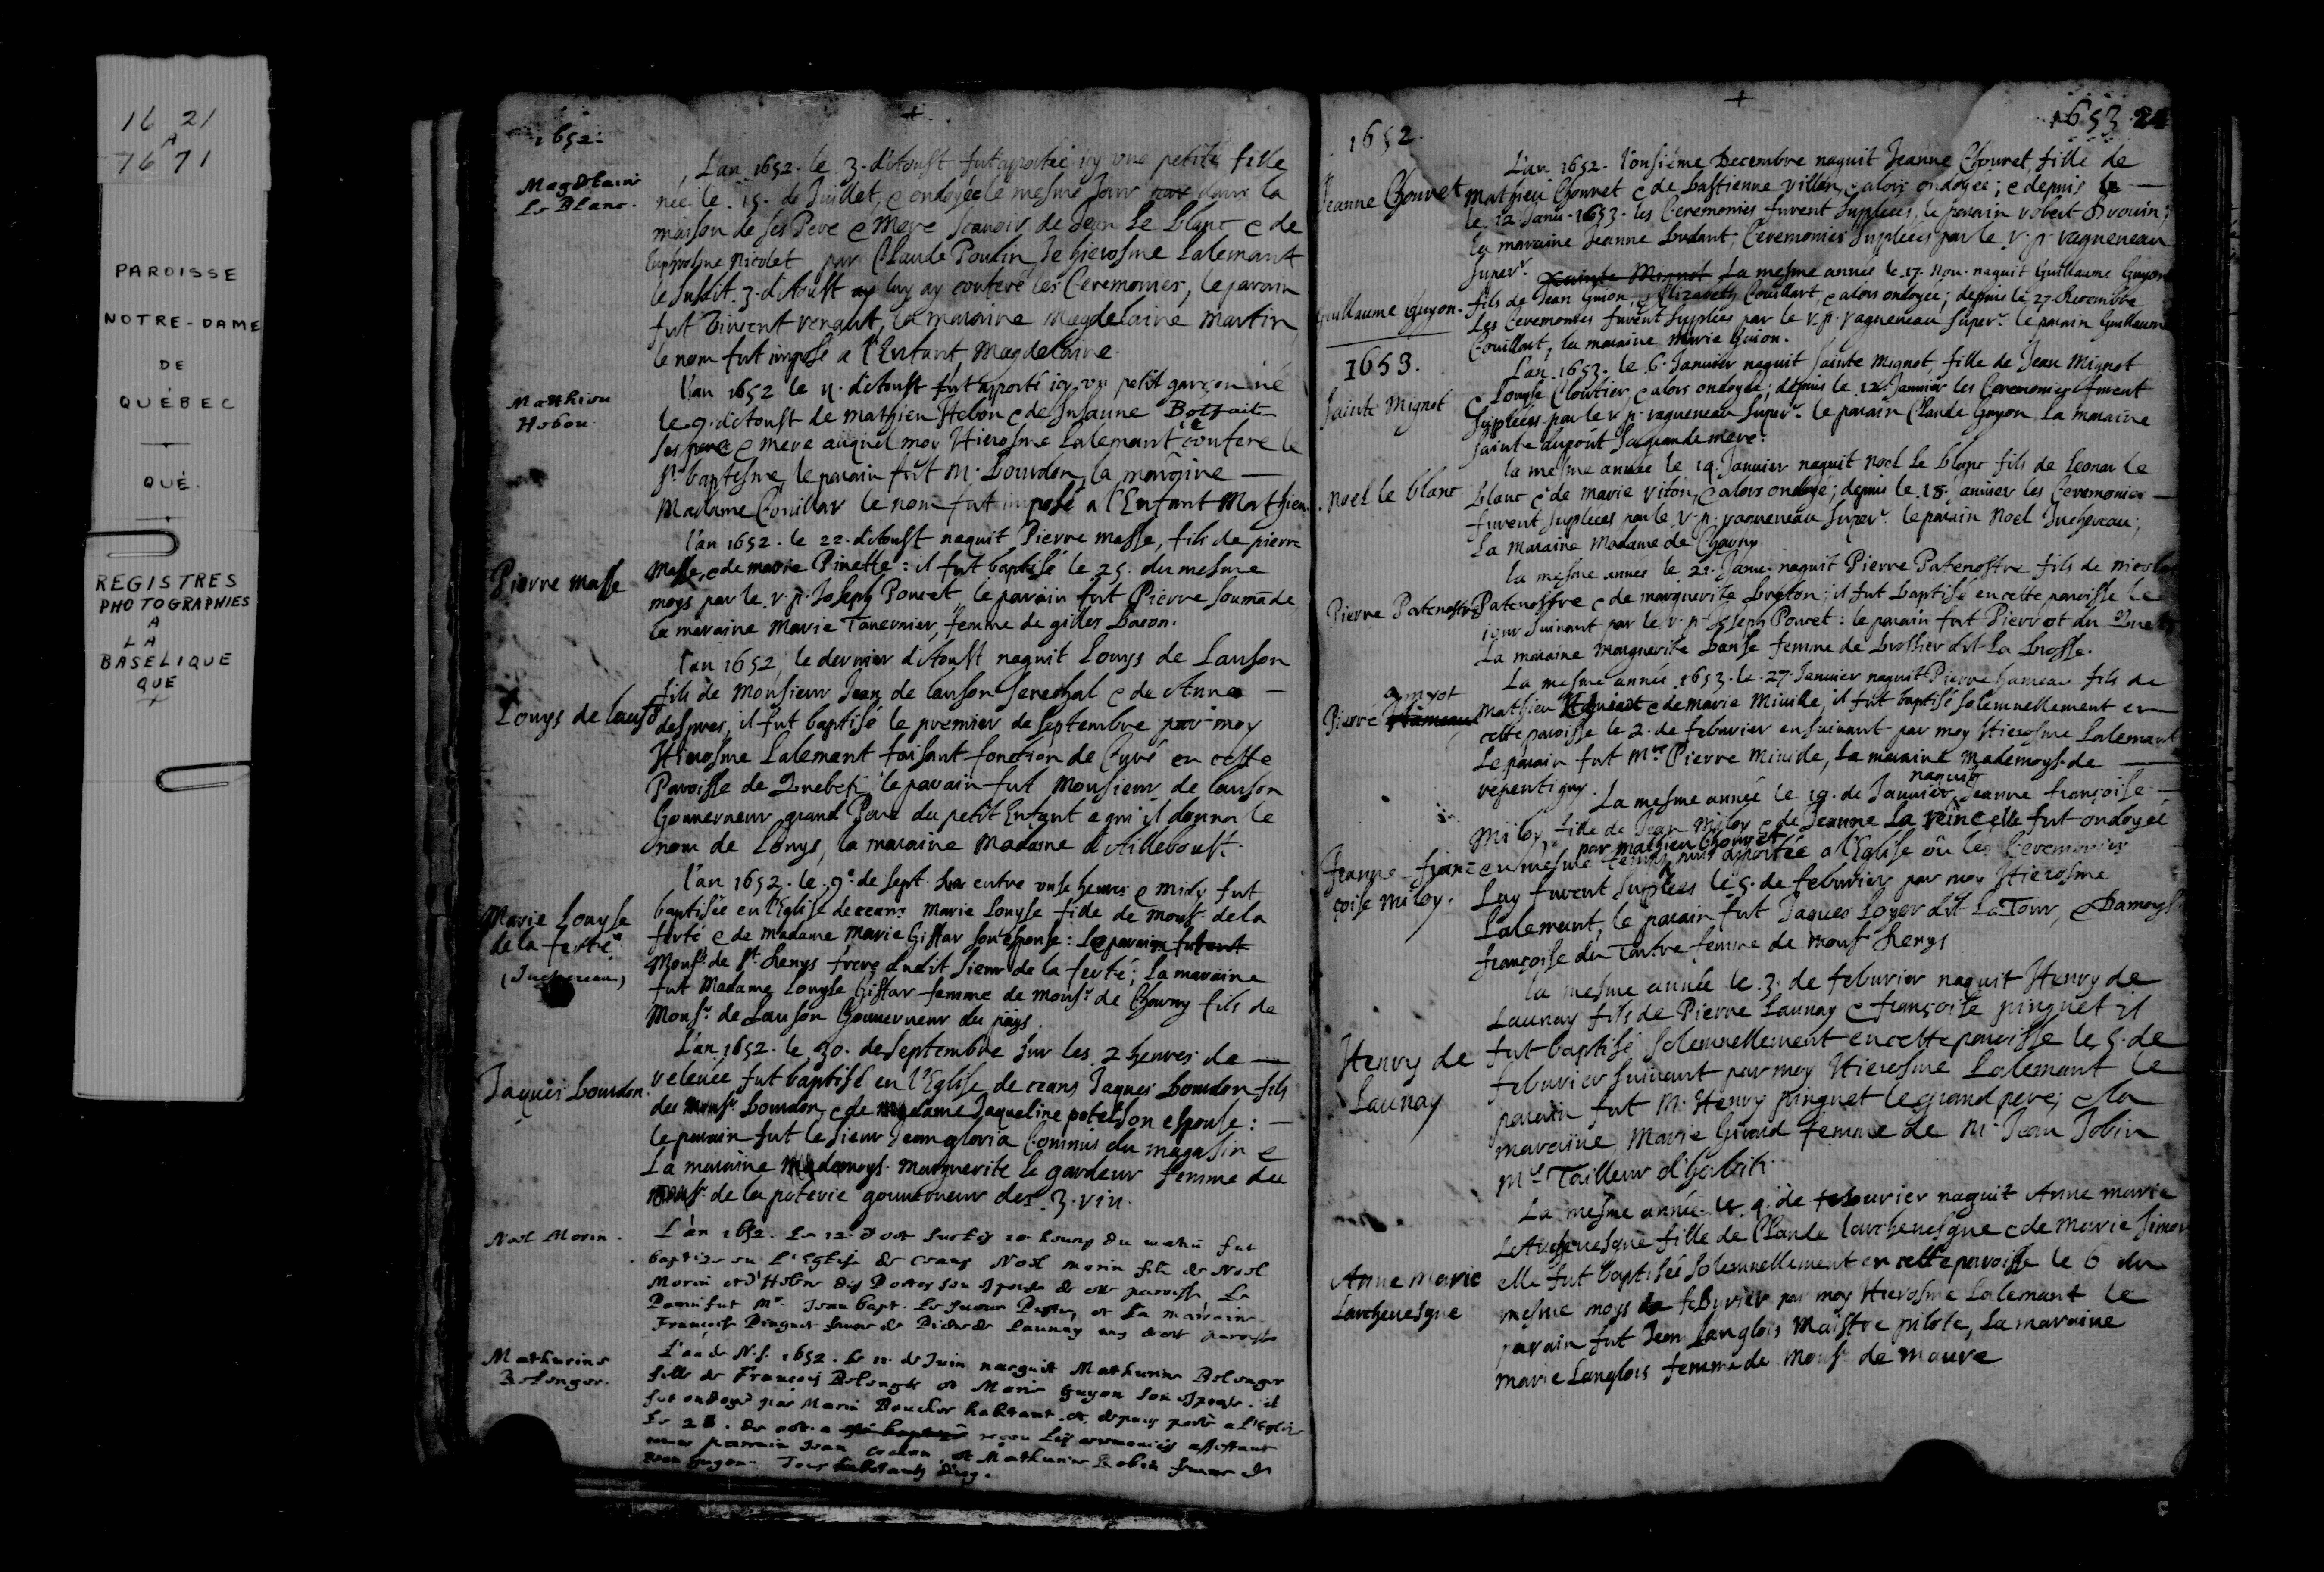 16 21
A
1671
PAROISSE
NOTRE-DAME
DE
QUÉBEC
QUÉ.
REGISTRES
PHOTOGRAPHIES
A
LA
BASELIQUE
QUE
1652.
Magdlaine
Le Blanc.
L'an 1652. le 3. d'Aoust fut aportée icy une petite fille
née le 15. de Juillet, e ondoyée le mesme Jour dans la
maison de ses Pere e Mere scavoir de Jean Le blanc e de
Euphrosine Nicolet par Claude Poulin, Je hierosme Lalemant
le susdit 3. d'Aoust luy ay conferé les Ceremonies, le parain
fut Vincent renaut, la maraine Magdelaine Martin,
le nom fut imposé a l'Enfant Magdelaine.
Mathieu
Hebou
l'an 1652 le 11. d'Aoust fut aporté icy un petit garçon né
le 9. d'Aoust de Mathieu Hebou e de Susanne
ses pere e mere auquel moy Hierosme Lalemant confere le
st baptesme, le parain fut M. Bourdon, la maraine
Madame Couillar le nom fut imposé a l'Enfant Mathieu.
Pierre Masse
l'an 1652. le 22. d'Aoust naquit Pierre masse, fils de pierre
Masse, e de marie Pinette : il fut baptisé le 25. du mesme
moys par le r. p. Joseph Poncet le parain fut Pierre Soumāde,
la maraine Marie Tavernier, femme de gilles Bacon.
Louys de lausō
l'an 1652, le dernier d'Aoust naquit Louys de Lauson
fils de Monsieur Jean de lauson senechal e de Anne
despres, il fut baptisé le premier de septembre par moy
Hierosme Lalemant faisant fonction de Curé en cette
Paroisse de Quebek, le parain fut Monsieur de lauson
Gouverneur grand Pere du petit Enfant a qui il donna le
nom de Louys, la maraine Madame d'Ailleboust.
Marie Louyse
de la ferté
(Juchereau)
l'an 1652. le 9e. de sept. entre onse heures e midy fut
baptisée en l'Eglise de ceans Marie Louyse fille de monsr de la
ferté e de Madame Marie Giffar son esponse : Le parain
Monsr de st Denys frere dudit Sieur de la ferté ; la maraine
fut Madame Louyse Giffar femme de Monsr. de Charny fils de
Monsr. de Lauson Gouverneur du pays.
Jaques Bourdon.
L'an 1652. le 30. de septembre sur les 2 heures de
relevée fut baptisé en l'Eglise de ceans Jaques Bourdon fils
de Monsr. Bourdon, e de Madame Jaqueline potel son espouse :
le parain fut le sieur Jean gloria Commis du magasin e
La maraine Mademoys. Marguerite le gardeur femme de
Monsr. de la poterie gouverneur des 3. riv.
Noel Morin.
L'an 1652. Le 12. d'oct sur les 10 heures du matin fut
baptizé en L'Eglise de ceans Noel morin fils de Noel
Morin et d'Helene des Portes son espouse de cette paroisse, Le
Parin fut Mr. Jean bapt. Le Sueur Prestre, et La maraine
Françoise Pinguet femme de Pierre de Launay
Mathurine
Belenger.
L'an de N.S. 1652. le 11. de Juin nasquit Mathurine Belenger
fille de François Belenger et Marie Guyon son espouse. il
fut ondoyé par Marin Boucher habitant. et depuis porté a l'Eglise
Le 28. de receu les ceremonies assistant
parrain Jean et Mathurine Robin femme de
Jean Guyon. Tous habitants
1652.
1653
Jeanne Chouret
L'an 1652. l'onsiéme Decembre naquit Jeanne Chouret, fille de
Mathieu Chouret e de bastienne Villon, e alors ondoyée ; e depuis le
le 12 Janu. 1653. les Ceremonies furent supleées, le parain robert Drouin ;
la maraine Jeanne ; Ceremonies supleées par le r. p. ragueneau
superr.
Guillaume Guyon.
Sainte Mignot La mesme année le 17. Nou. naquit Guillaume Guyon
fils de Jean Guion, e Elizabeth Couillart, e alors ondoyée ; depuis le 27 Decembre
Les Ceremonies furent suplées par le r. p. ragueneau superr. le parain Guillaume
Couillart, la maraine Marie Guion.
1653.
Sainte Mignot
L'an 1653. le 6. Januier naquit sainte Mignot, fille de Jean Mignot
e Louyse Cloutier, e alors ondoyée ; depuis le 12 Januier les Ceremonies furent
supleées par le r. p. ragueneau superr. le parain Claude Guyon La maraine
sainte dupont sa grande mere.
Noel le blanc
la mesme année le 19. Januier naquit Noel Le blanc fils de Leonar le
blanc e de marie riton, e alors ondoyé ; depuis le 18. Januier les Ceremonies
furent supleées par le r. p. ragueneau superr. le parain Noel Juchereau ;
La maraine Madame de Charny.
Pierre Patenostre
la mesme année le 21. Janu. naquit Pierre Patenostre fils de nicolas
Patenostre e de marguerite breton ; il fut baptisé en cette paroisse le
jour suivant par le r. p. Joseph Poncet : le parain fut Pierrot du
La maraine Marguerite Banse femme de Brossier dit La Brosse.
Amyot
Pierre Hameau
La mesme année 1653. le 27. Januier naquit Pierre hameau fils de
Mathieu e de marie Miuille, il fut baptisé solemnellement en
cette paroisse le 2. de feburier ensuivant par moy Hierosme Lalemant
Le parain fut Mre. Pierre Miuille, La maraine Mademoys. de
repentigny.
Jeanne fran=
çoise miloy.
naquit
La mesme année le 19. de Januier Jeanne françoise
Miloy, fille de Jean Miloy e de Jeanne La reine elle fut ondoyée
par Mathieu Chouret
en mesme temps, puis aportée a l'Eglise où les Ceremonies
Luy furent suplees le 5. de feburier par moy Hierosme
Lalemant, le parain fut Jaques Loyer dit La Tour, e Damoys.
françoise du Tartre femme de Monsr. Denys
Henry de
Launay
la mesme année le 3. de feburier naquit Henry de
Launay fils de Pierre Launay e françoise pinguet il
fut baptisé solemnellement en cette paroisse le 5. de
feburier suivant par moy Hierosme Lalemant le
parain fut M. Henry pinguet le grand pere ; e la
maraine, Marie Giraud femme de Mr Jean Jobin
Me Tailleur d'habits.
Anne Marie
Larcheuesque
La mesme année le 4. de feburier naquit Anne marie
L'Archeuesque fille de Claude larcheuesque e de marie simon
elle fut baptisée solemnellement en cette paroisse le 6 du
mesme moys de feburier par moy Hierosme Lalemant le
parain fut Jean Langlois Maistre pilote, La maraine
marie Langlois femme de Monsr. de maure